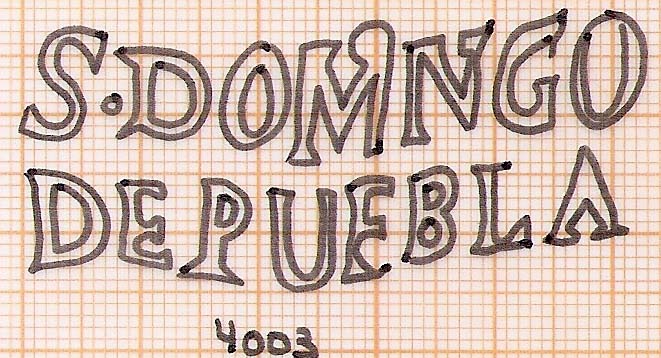 S. DOMNGO
DE PUEBLA
4003